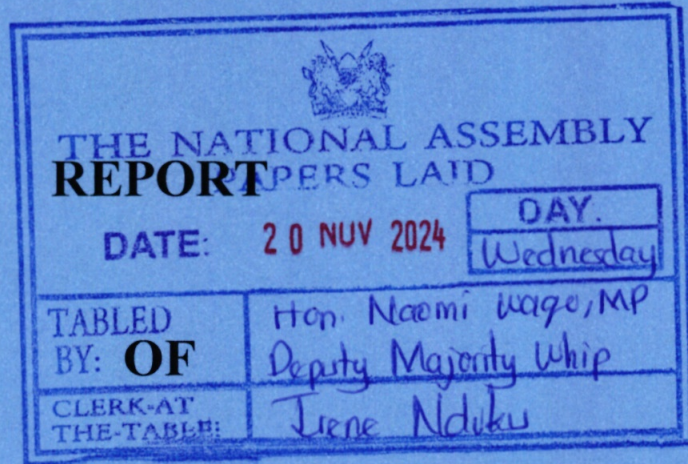 THE NATIONAL ASSEMBLY
REPORT
PAPERS LAID
DATE: 20 NOV 2024
DAY.
Wednesday
TABLED BY:
Hon. Naomi Waqo, MP
Deputy Majority Whip
OF
CLERK-AT THE-TABLE:
Irene Nduku